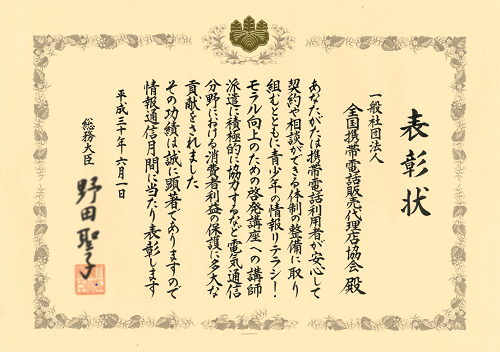 表彰状
一般社団法人
全国携帯電話販売代理店協会 殿
あなたがたは携帯電話利用者が安心して
契約や相談ができる体制の整備に取り
組むとともに青少年の情報リテラシー・
モラル向上のための啓発講座への講師
派遣に積極的に協力するなど電気通信
分野における消費者利益の保護に多大な
貢献をされました
その功績は誠に顕著でありますので
情報通信月間に当たり表彰します
平成三十年六月一日
総務大臣
野田聖子